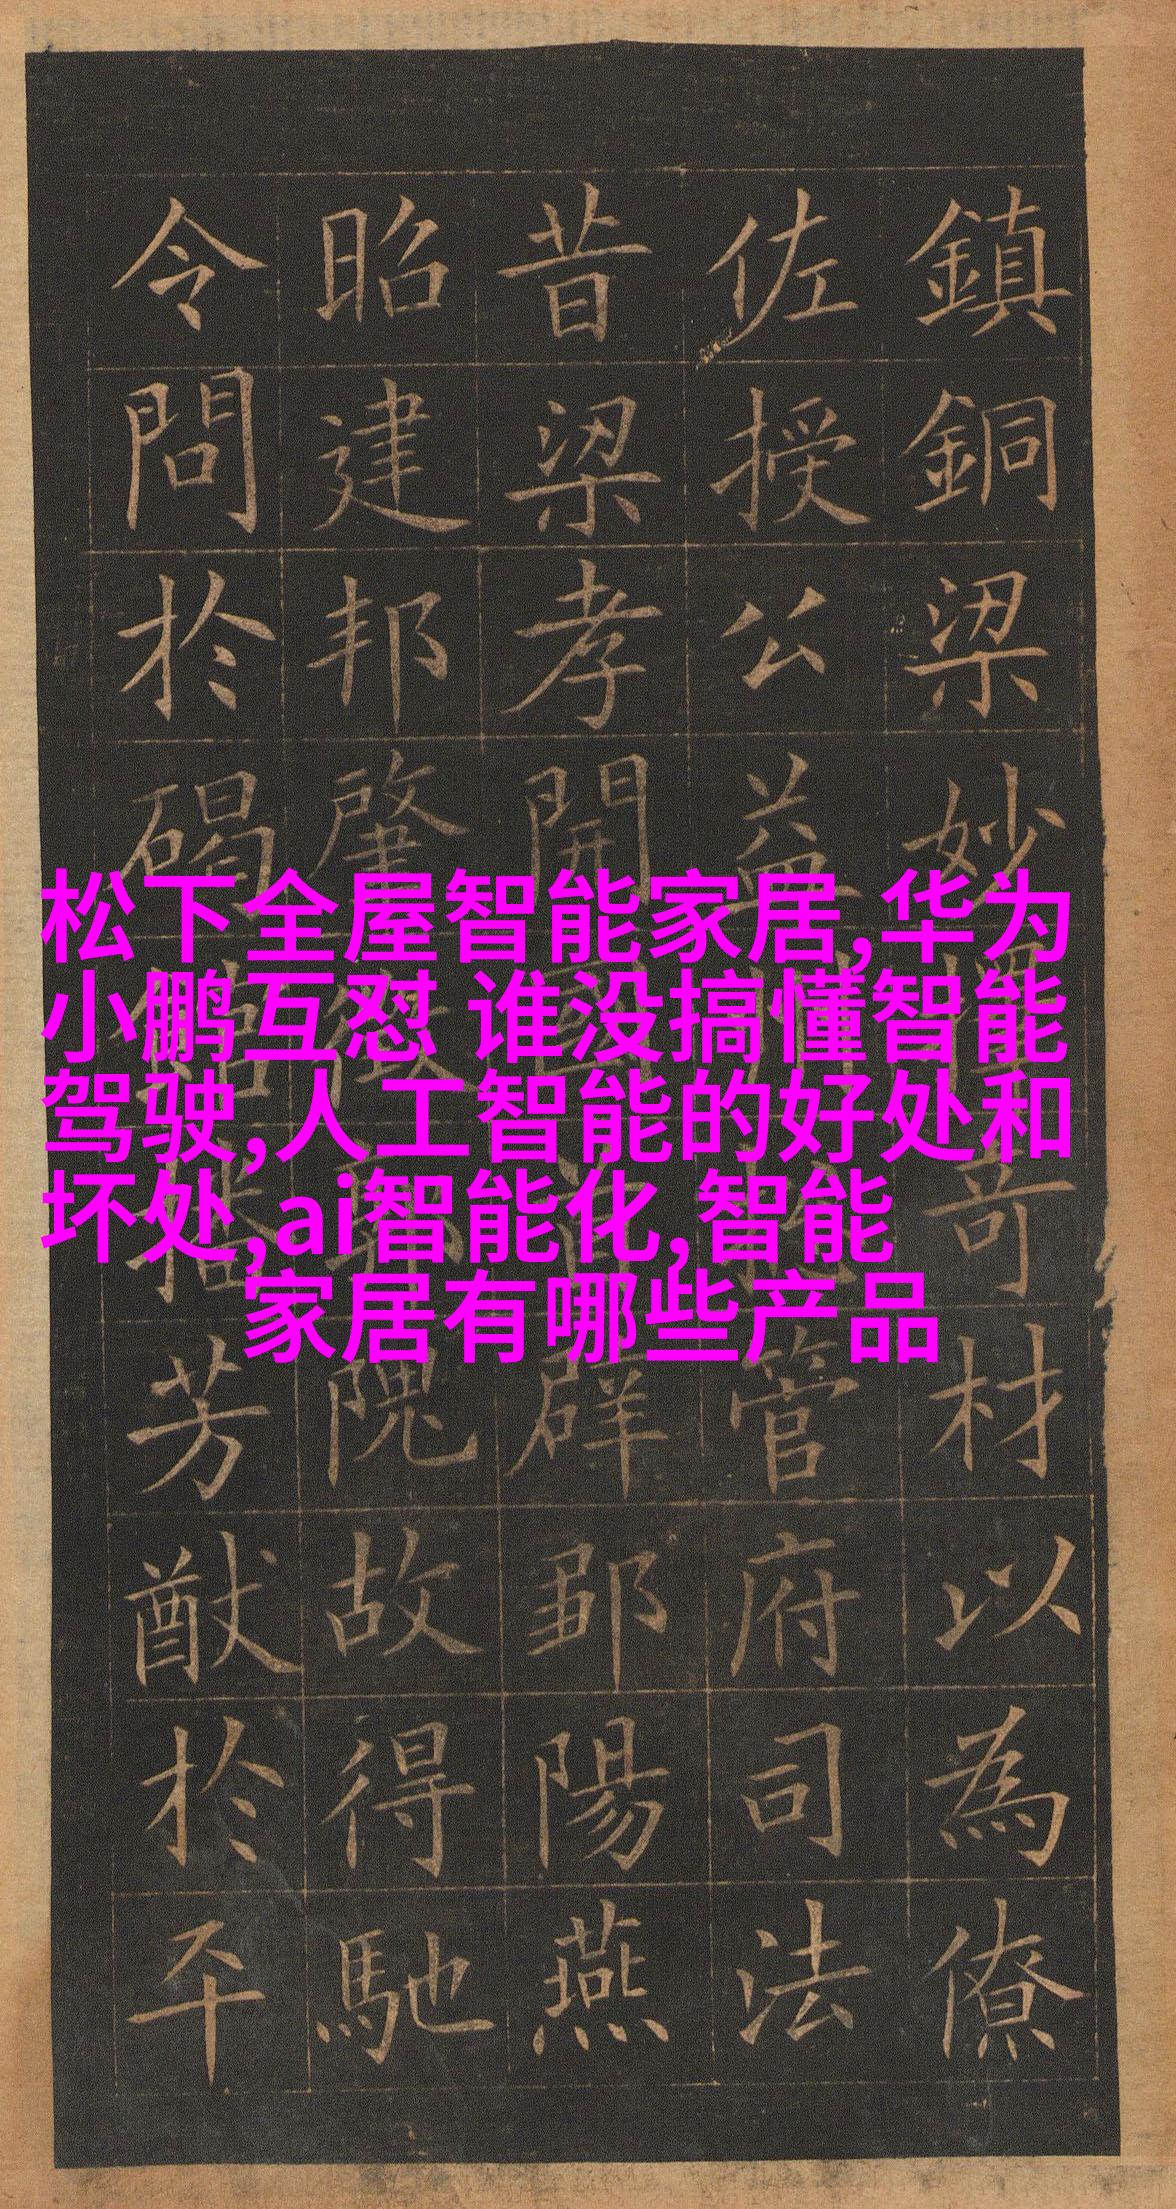 鎮銅梁妙奇材以為僚
佐授公益州管府司法
昔梁孝開國首辟鄒陽燕
昭建邦肇徵郭隗故得馳
令問於碣館播芳猷於平
松下全屋智能家居,华为
小鹏互怼 谁没搞懂智能
驾驶,人工智能的好处和
坏处,ai智能化,智能
家居有哪些产品